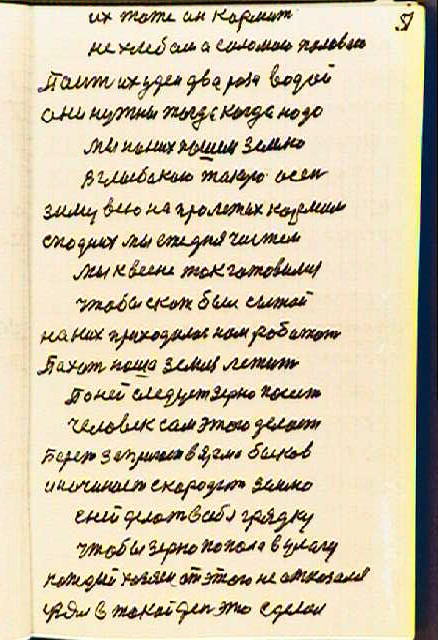 51
их тоже он кормит
не хлебам а саломаю половаю
Паит их уден два раза водой
они нужны тогда когда надо
мы на них пашим землю
в глыбокаю такую осен
зиму вею на пролетах кормим
сподних мы ежедня чистем
мы к весне так готовимся
чтобы скот был сытай
на них приходилас нам работат
Пахот наша земля летит
По ней следует зерно посеит
человек сам этого делает
Берет запрягает в ярмо быков
и начинает скародит землю
с ней делат в себя грядку
чтобы зерно попала в улагу
каждый хозяен от этого не отказался
взял в такой ден это сделал